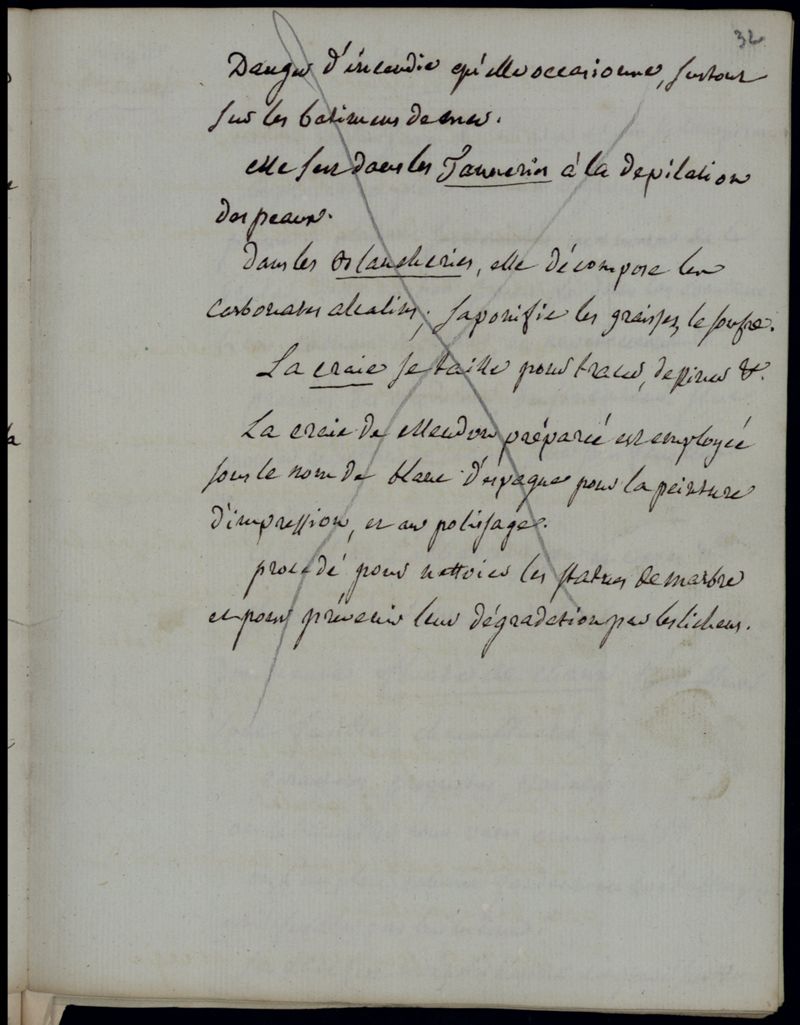 32
Danger d'incendie qu'elle occasionne, surtout
sur les batimens de mer.
elle sert dans les Tanneries à la depilation
des peaux.
Dans les Blancheries, elle décompose les
carbonates alcalins, saponifie les graisses, le soufre.
La craie se taille pour tracer, dessiner &.
La craie de Meudon préparée est employée
sous le nom de blanc d'espagne pour la peinture
d'impression, et au polissage.
procedé pour nettoier les statues de marbre
et pour prévenir leur dégradation par les lichens.